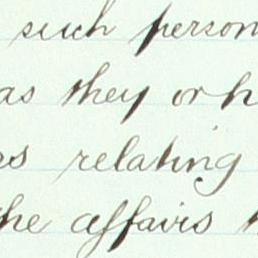 such person
as they or h
es relating
the affairs